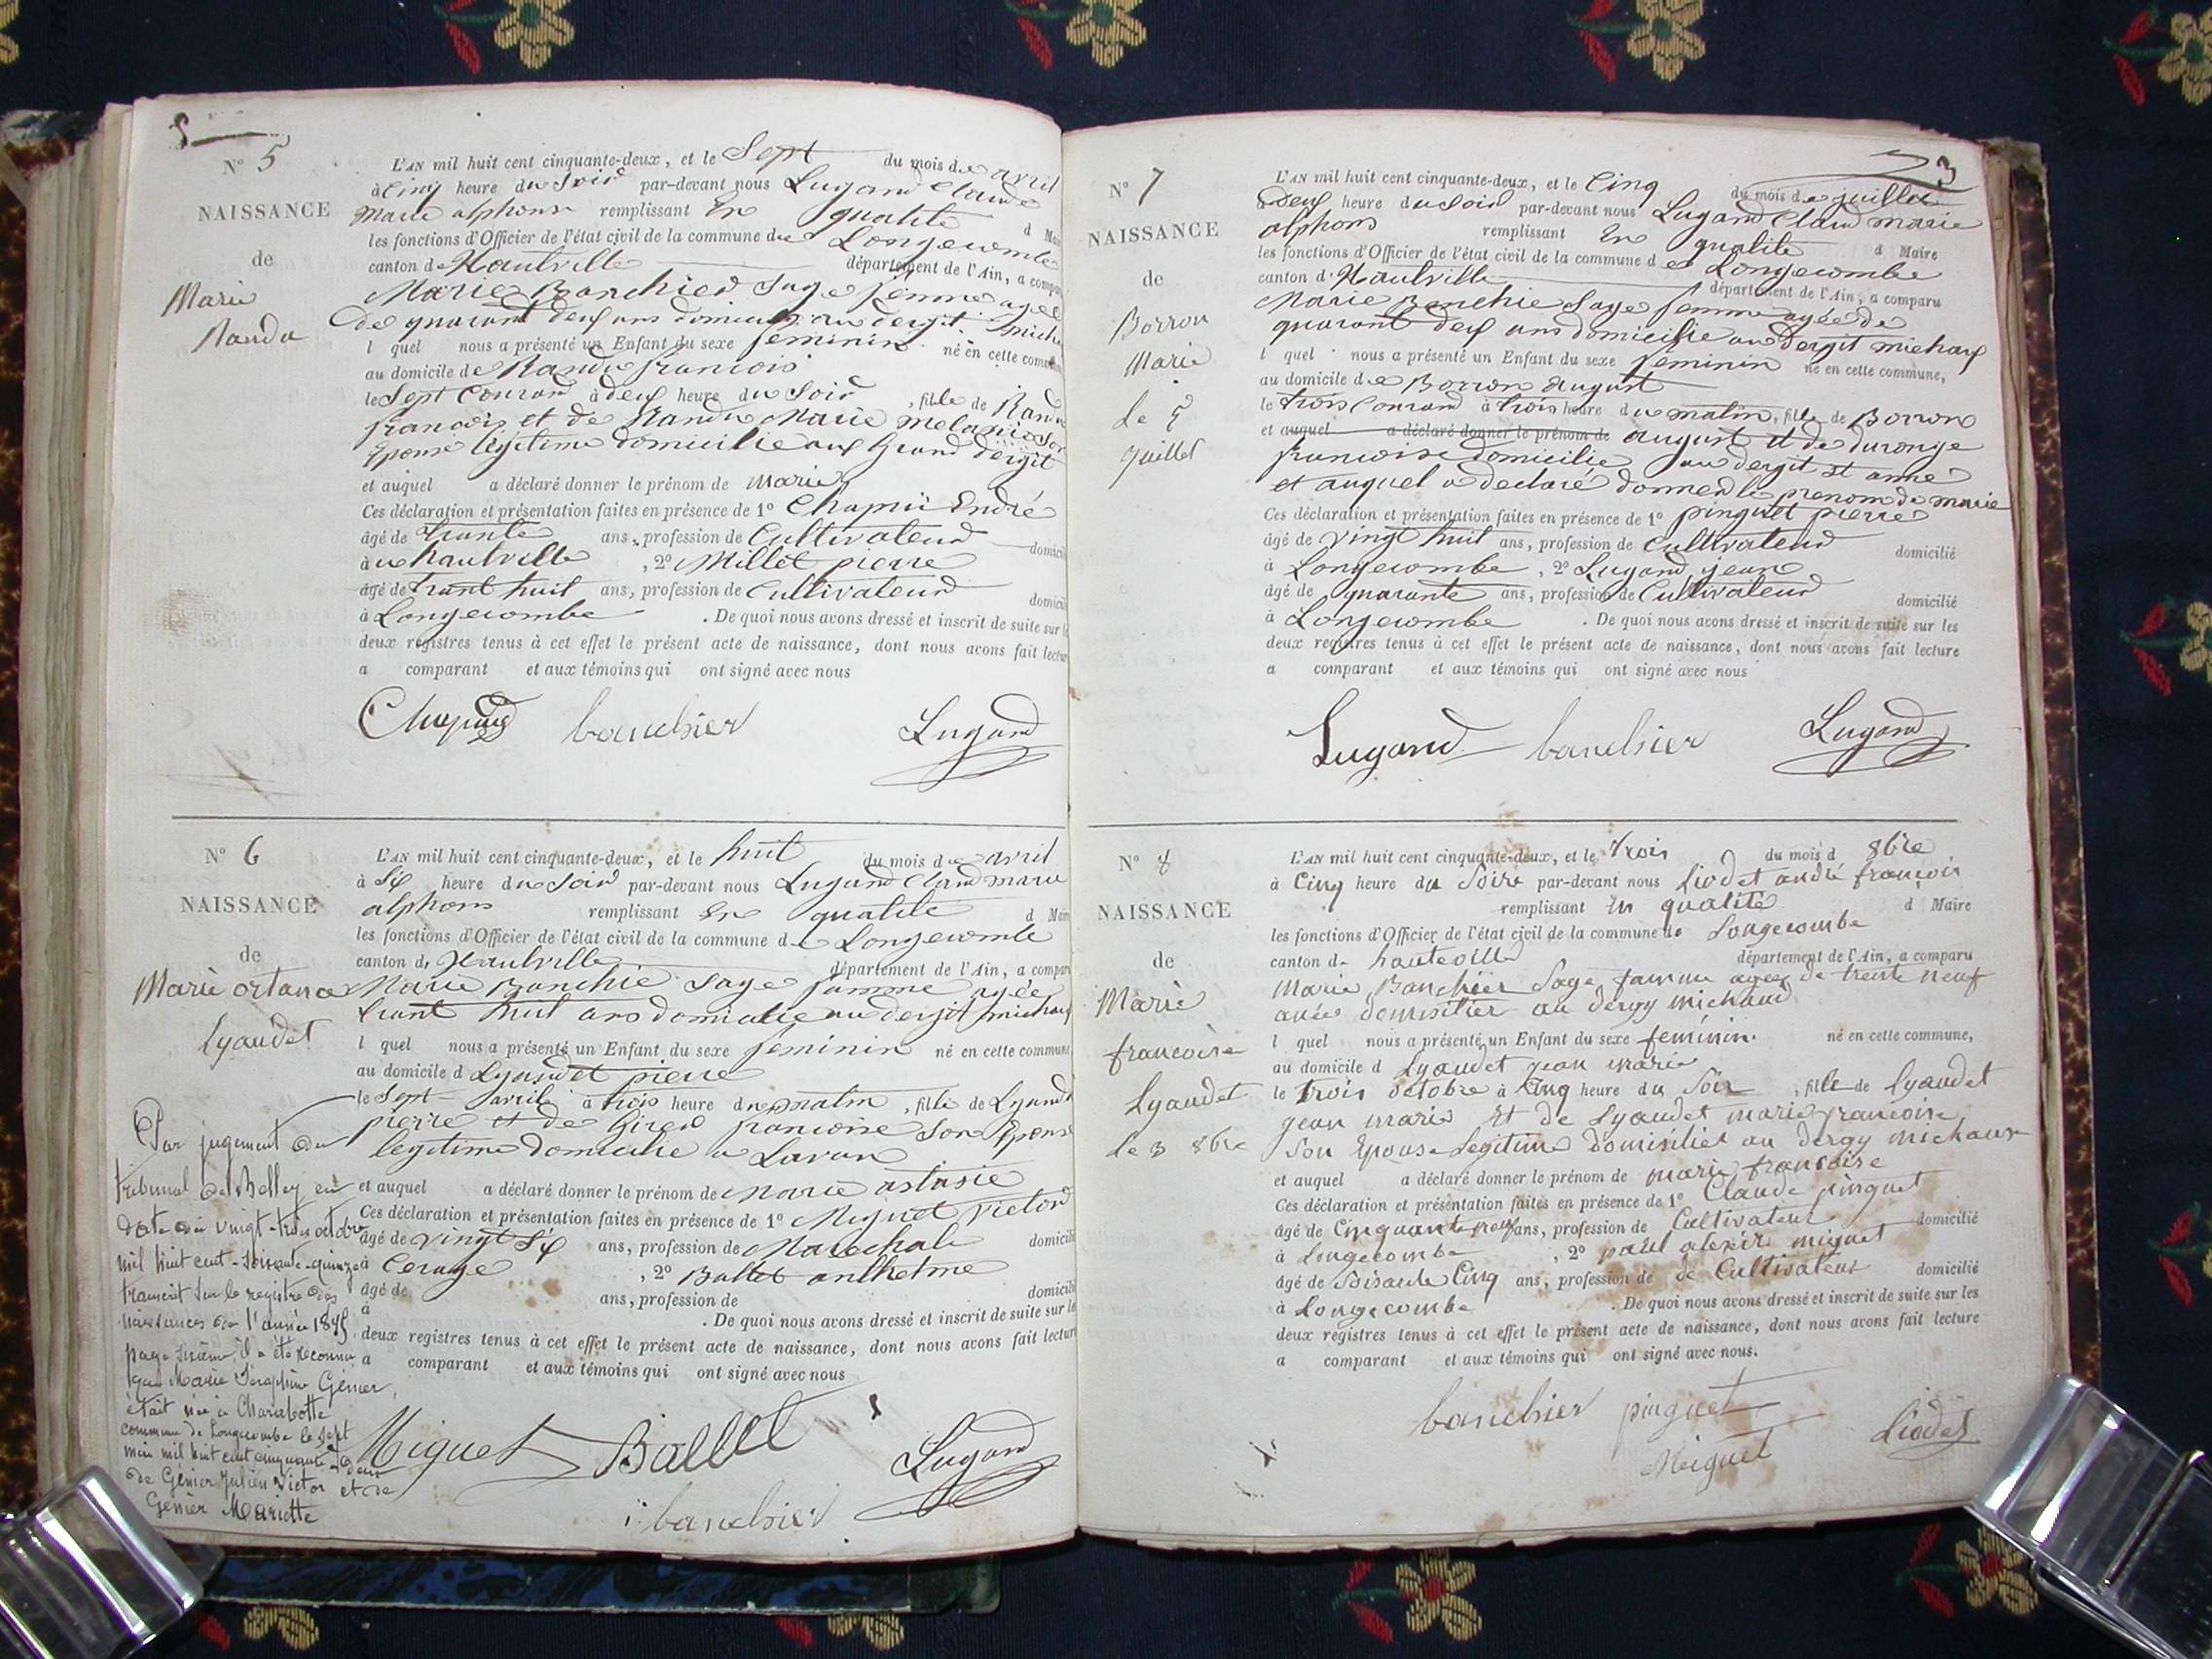 N° 5
NAISSANCE
de
Marie
Randu
L'AN mil huit cent cinquante-deux, et le Sept du mois de avril
à Cinq heure du Soir par-devant nous Lugand Claude
Marie alphonse remplissant En qualité d Mai
les fonctions d'Officier de l'état civil de la commune de Longecombe
canton de Hautville département de l'Ain, a compa
Marie Banchier Sage femme agée
de quarant deux ans domicilie au dergit Micha
l quel nous a présenté un Enfant du sexe feminin né en cette commu
au domicile de Randu francois
le Sept Courand à deux heure du Soir, fille de Randu
francois et de Randu Marie melanie Son
Epouse legitime domicilie aux Grand dergit
et auquel a déclaré donner le prénom de Marie
Ces déclaration et présentation faites en présence de 1° Chapuii Endré
âgé de trante ans, profession de Cultivateur domici
à hautville, 2° Millet pierre
âgé de trant huit ans, profession de Cultivateur domici
à Longecombe. De quoi nous avons dressé et inscrit de suite sur le
deux registres tenus à cet effet le présent acte de naissance, dont nous avons fait lectur
a comparant et aux témoins qui ont signé avec nous
Chapuis banchier Lugand
N° 6
NAISSANCE
de
Marie ortance
Lyaudet
L'AN mil huit cent cinquante-deux, et le huit du mois de avril
à Six heure du Soir par-devant nous Lugand Claud marie
alphons remplissant En qualité d Mair
les fonctions d'Officier de l'état civil de la commune de Longecombe
canton d Hautville département de l'Ain, a compar
Marie Banchie Sage famme agée
trant huit ans domicilie au dergit michaux
l quel nous a présenté un Enfant du sexe feminin né en cette commune
au domicile d Lyaudet pierre
le Sept avril à trois heure du matin, fille de Lyaudet
pierre et de Girod francoise Son Epouse
legitime domicilie a Lavan
et auquel a déclaré donner le prénom de Marie astasie
Ces déclaration et présentation faites en présence de 1° Miguet Victor
âgé de vingt Six ans, profession de Marechale domicili
à Ceruge, 2° Ballet anthelme
âgé de ans, profession de domicili
à . De quoi nous avons dressé et inscrit de suite sur le
deux registres tenus à cet effet le présent acte de naissance, dont nous avons fait lecture
a comparant et aux témoins qui ont signé avec nous
Par jugement du
tribunal de Belley en
date du vingt-trois octobre
mil huit cent-soixante-quinze
transcrit sur le registre des
naissances de l'année 1875,
page sixième, il a été reconnu
que Marie Séraphine Génier,
était née à Charabotte
commune de Longecombe le sept
mai mil huit cent cinquante-deux
de Génier Julien Victor et de
Génier Mariette
Miguet Ballet Lugand
banchier
3
N° 7
NAISSANCE
de
Borron
Marie
le 5
Juillet
L'AN mil huit cent cinquante-deux, et le Cinq du mois de juillet
à deux heure du Soir par-devant nous Lugand Claud marie
alphons remplissant En qualité d Maire
les fonctions d'Officier de l'état civil de la commune de Longecombe
canton d Hautville département de l'Ain, a comparu
Marie Banchie Sage femme agée de
quarant deux ans domicilie au dergit michaux
l quel nous a présenté un Enfant du sexe feminin né en cette commune,
au domicile de Borron august
le trois Courand à trois heure du matin, fille de Borron
et auquel a déclaré donner le prénom de august et de duronge
francoise domicilie au dergit st anne
et auquel a declaré donner le prenom de marie
Ces déclaration et présentation faites en présence de 1° pinguet pierre
âgé de vingt huit ans, profession de Cultivateur domicilié
à Longecombe, 2° Lugand jean
âgé de quarante ans, profession de Cultivateur domicilié
à Longecombe. De quoi nous avons dressé et inscrit de suite sur les
deux registres tenus à cet effet le présent acte de naissance, dont nous avons fait lecture
a comparant et aux témoins qui ont signé avec nous
Lugand banchier Lugand
N° 8
NAISSANCE
de
Marie
francoise
Lyaudet
le 3 8bre
L'AN mil huit cent cinquante-deux, et le trois du mois d 8bre
à Cinq heure du Soire par-devant nous Liodet andré francois
remplissant en qualité d Maire
les fonctions d'Officier de l'état civil de la commune de Longecombe
canton de hauteville département de l'Ain, a comparu
Marie Banchier Sage famme agée de trente neuf
anée domisilier au dergy michaud
l quel nous a présenté un Enfant du sexe feminin. né en cette commune,
au domicile d Lyaudet jean marie
le trois octobre à Cinq heure du Soir, fille de Lyaudet
jean marie et de Lyaudet marie francoise
Son Epouse Legitime Domisilier au dergy michaux
et auquel a déclaré donner le prénom de marie francoise
Ces déclaration et présentation faites en présence de 1° Claude pinguet
âgé de Cinquante neuf ans, profession de Cultivateur domicilié
à Longecombe, 2° paul alexis miguet
âgé de Soisante Cinq ans, profession de de Cultivateur domicilié
à Longecombe. De quoi nous avons dressé et inscrit de suite sur les
deux registres tenus à cet effet le présent acte de naissance, dont nous avons fait lecture
a comparant et aux témoins qui ont signé avec nous.
banchier pinguet
Miguet Liodet